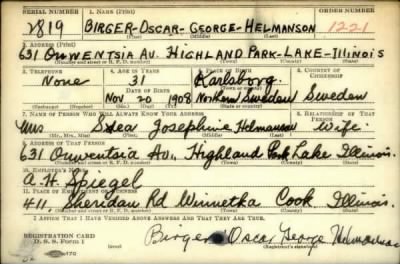 SERIAL NUMBER 1. NAME (Print) ORDER NUMBER
2819 BIRGER-OSCAR-GEORGE-HELMANSON 1221
(First) (Middle) (Last)
2. ADDRESS (Print)
631 OUWENTSIA AV. HIGHLAND PARK-LAKE-ILLINOIS
(Number and street or R. F. D. number) (Town) (County) (State)
3. TELEPHONE 4. AGE IN YEARS 5. PLACE OF BIRTH 6. COUNTRY OF CITIZENSHIP
None 31 Karlsborg
DATE OF BIRTH (Town or county)
Nov 20 1908 Northern Sweden Sweden
(Exchange) (Number) (Mo.) (Day) (Yr.) (State or country)
7. NAME OF PERSON WHO WILL ALWAYS KNOW YOUR ADDRESS 8. RELATIONSHIP OF THAT PERSON
Mrs Josephine Helmanson Wife
(Mr., Mrs., Miss) (First) (Middle) (Last)
9. ADDRESS OF THAT PERSON
631 Ouwentsia Av., Highland Park Lake Illinois.
(Number and street or R. F. D. number) (Town) (County) (State)
10. EMPLOYER'S NAME
A. H. Spiegel
11. PLACE OF EMPLOYMENT OR BUSINESS
411 Sheridan Rd Winnetka Cook Illinois.
(Number and street or R. F. D. number) (Town) (County) (State)
I AFFIRM THAT I HAVE VERIFIED ABOVE ANSWERS AND THAT THEY ARE TRUE.
REGISTRATION CARD
D. S. S. Form 1
Birger Oscar George Helmanson